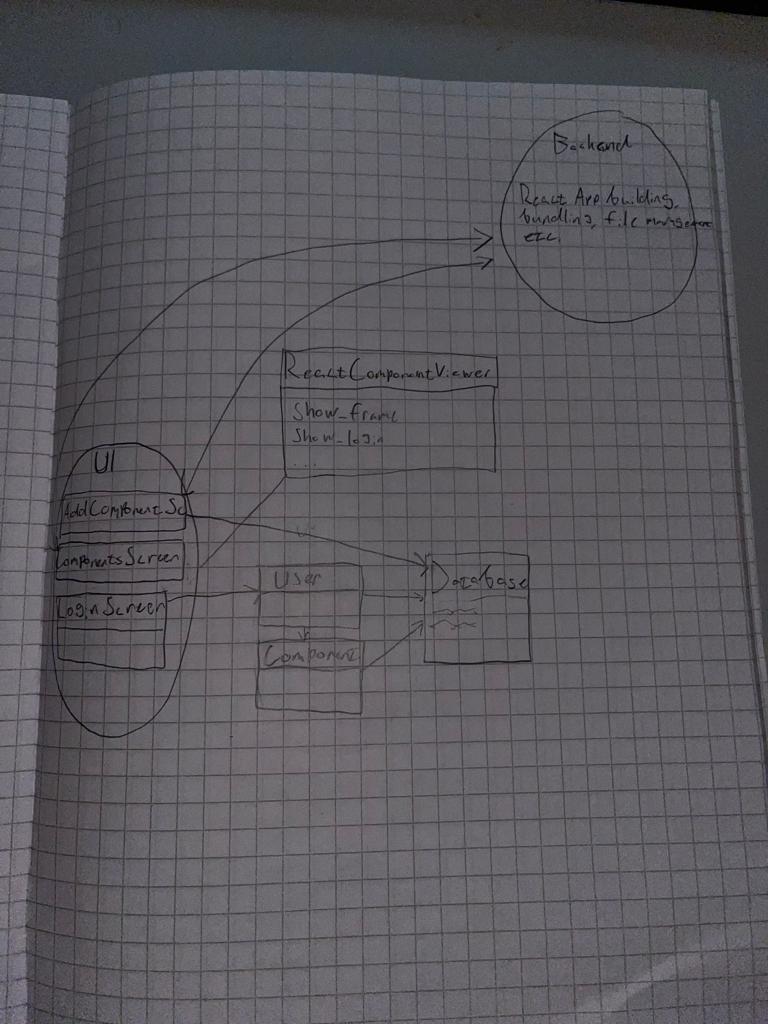 Backend
React App building,
bundling, file management
etc.
ReactComponentViewer
Show_frame
Show_login
...
UI
AddComponentSc
ComponentsScreen
LoginScreen
User
Component
Database